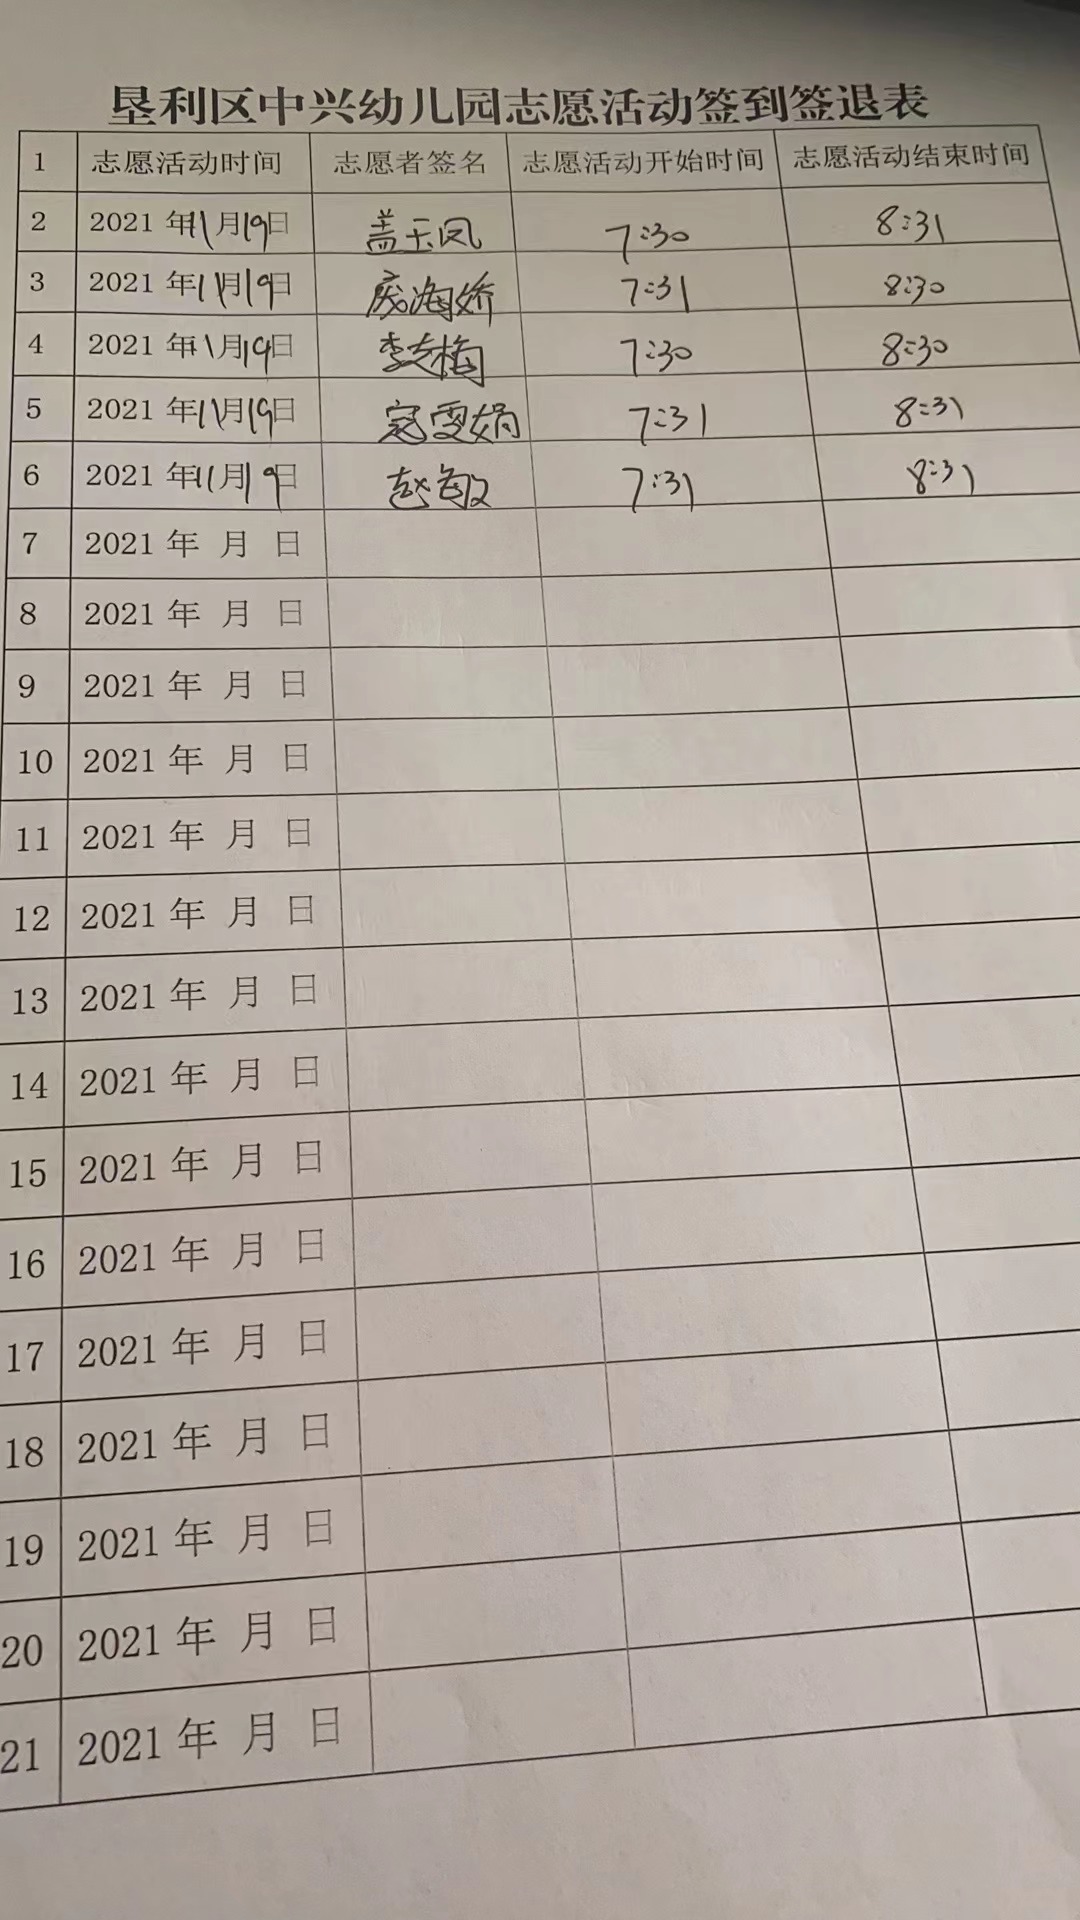 垦利区中兴幼儿园志愿活动签到签退表
1 志愿活动时间 志愿者签名 志愿活动开始时间 志愿活动结束时间
2 2021 年11月19日 盖玉凤 7:30 8:31
3 2021 年11月19日 庞海娇 7:31 8:30
4 2021 年11月19日 李梅 7:30 8:30
5 2021 年11月19日 寇雯娟 7:31 8:31
6 2021 年11月19日 赵敏 7:31 8:31
7 2021 年 月 日
8 2021 年 月 日
9 2021 年 月 日
10 2021 年 月 日
11 2021 年 月 日
12 2021 年 月 日
13 2021 年 月 日
14 2021 年 月 日
15 2021 年 月 日
16 2021 年 月 日
17 2021 年 月 日
18 2021 年 月 日
19 2021 年 月 日
20 2021 年 月 日
21 2021 年 月 日